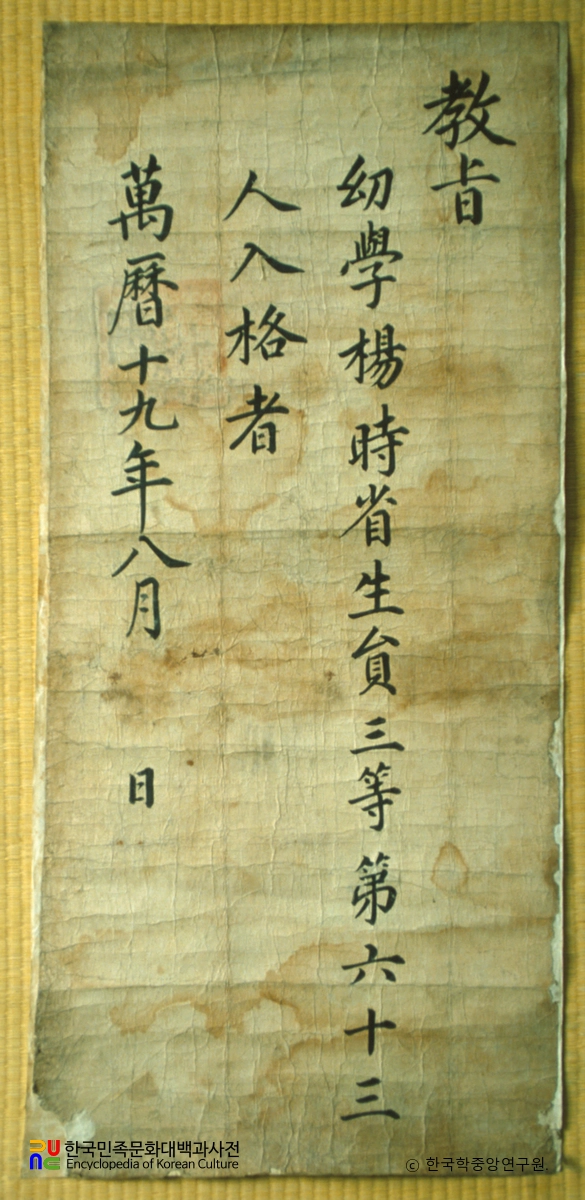 敎旨
幼學楊時省生員三等第六十三
人入格者
萬曆十九年八月 日
한국민족문화대백과사전
Encyclopedia of Korean Culture
ⓒ 한국학중앙연구원,